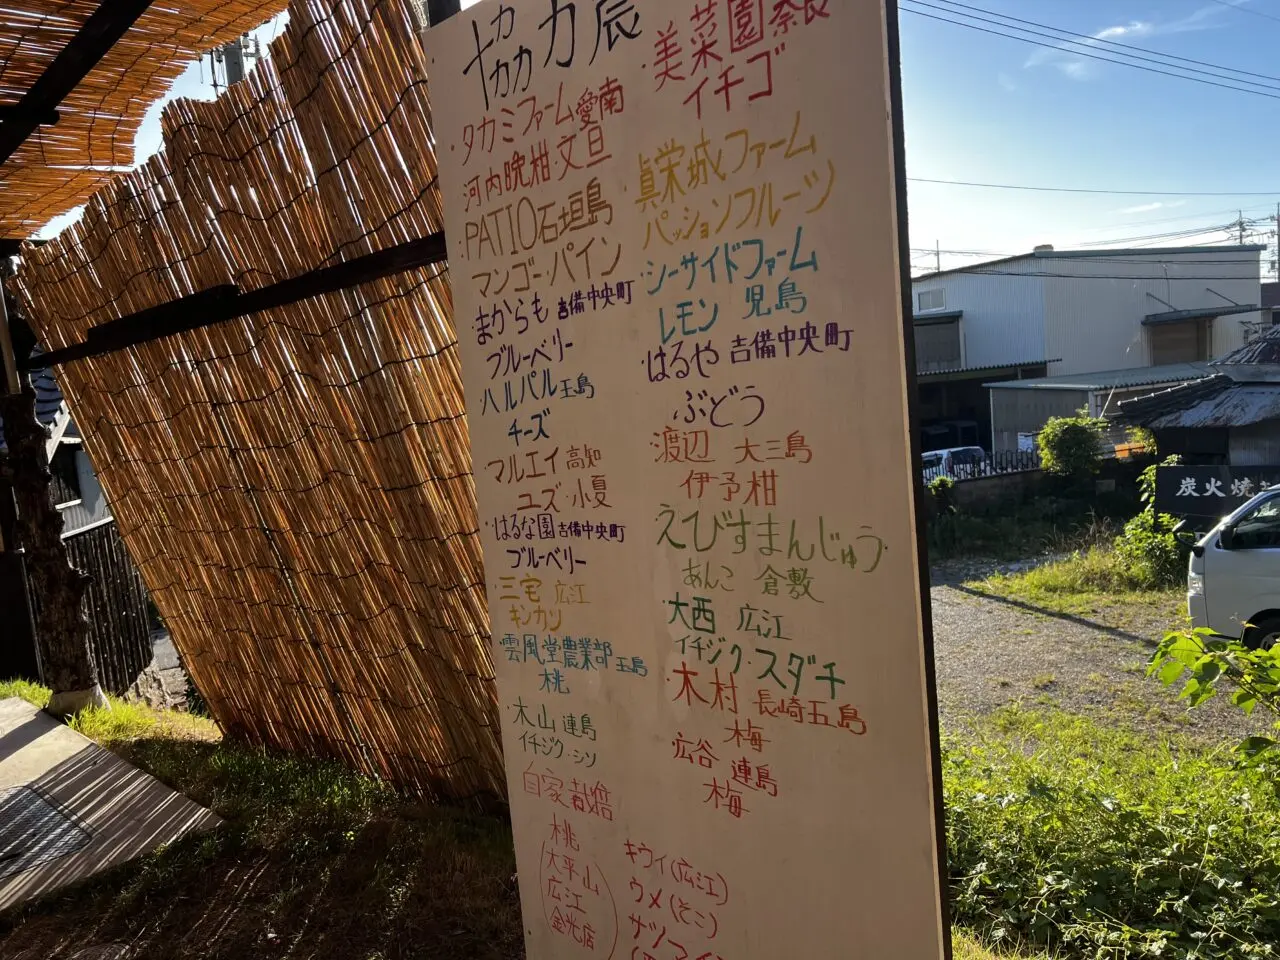 協力農
・タカミファーム愛南
河内晩柑・文旦
・PATIO石垣島
マンゴー・パイン
・まからも 吉備中央町
ブルーベリー
・ハルパル 玉島
チーズ
・マルエイ 高知
ユズ・小夏
・はるな園 吉備中央町
ブルーベリー
・三宅 広江
キンカン
・雲風堂農業部 玉島
桃
・木山 連島
イチジク・シソ
自家栽培
桃
大平山
広江
金光店
・美菜園
イチゴ
・眞栄城ファーム
パッションフルーツ
・シーサイドファーム
レモン 児島
・はるや 吉備中央町
ぶどう
・渡辺 大三島
伊予柑
・えびすまんじゅう
あんこ 倉敷
・大西 広江
イチジク・スダチ
・木村 長崎五島
梅
・広谷 連島
梅
キウイ(広江)
ウメ(そこ)
炭火焼